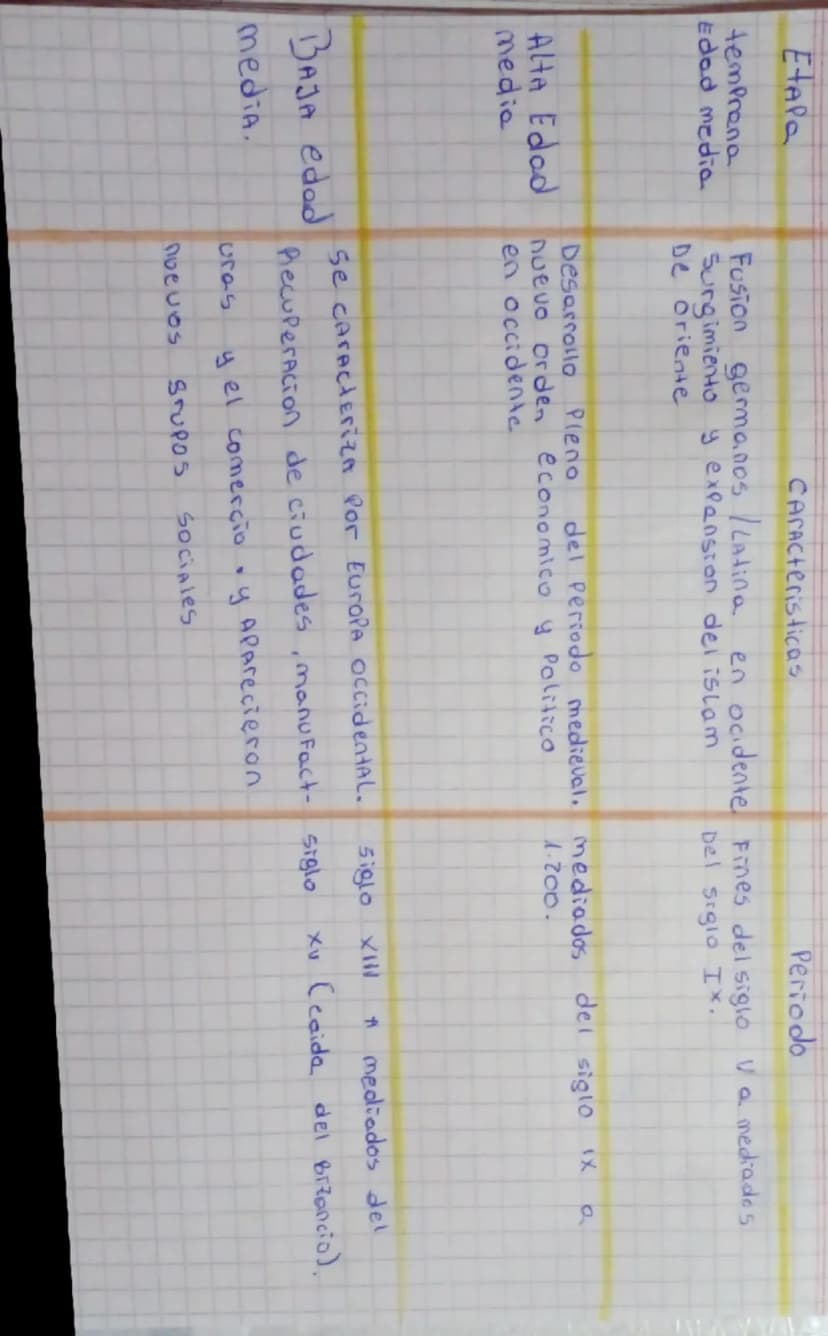 Etapa
Caracteristicas
Periodo
temprana
Edad media
Fusion germanos / Latina en ocidente
Surgimiento y expansion del islam
De oriente
Fines del siglo V a mediados
Del siglo IX.
Alta Edad
media
Desarrollo Pleno del Periodo medieval.
nuevo orden economico y Politico
en occidente
mediados del siglo IX a
1.200.
BAJA edad
media.
Se caracteriza Por Europa occidental.
Recuperacion de ciudades, manufact-
uras y el comercio. y aparecieron
nuevos grupos sociales
siglo XIII a mediados del
siglo XV (caida del Bizancio).